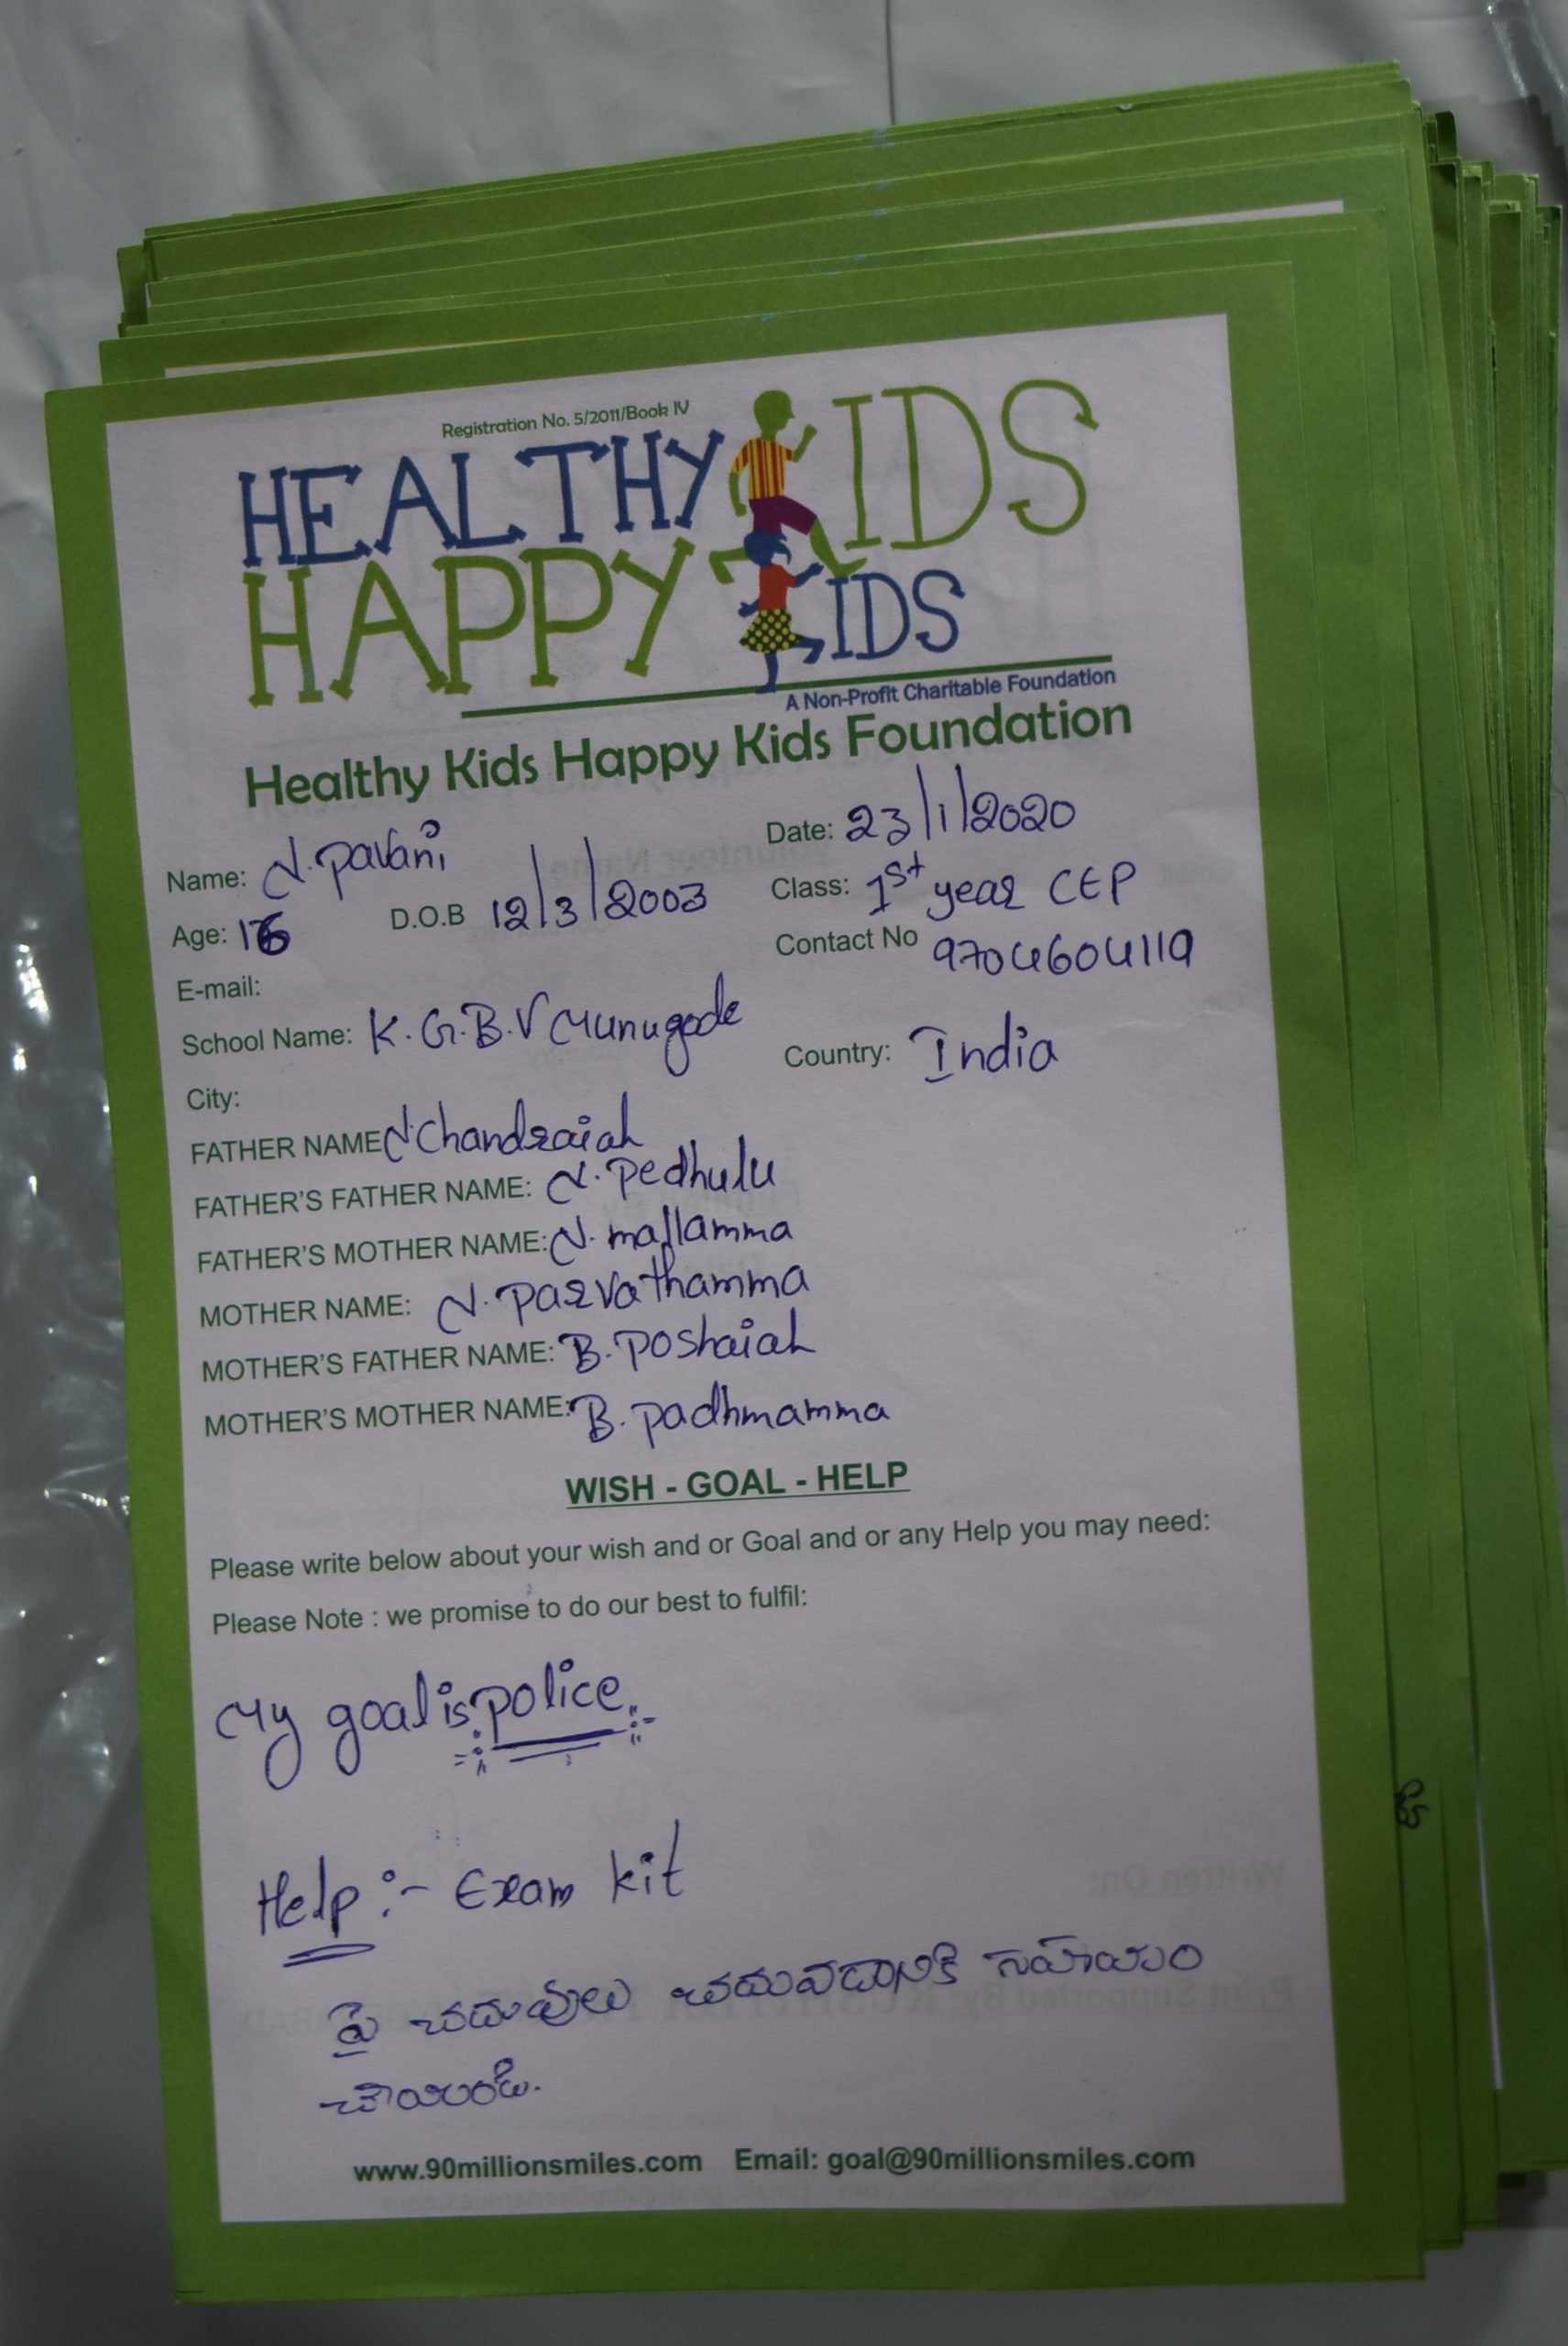 Registration No. 5/2011/Book IV
HEALTHY KIDS
HAPPY KIDS
A Non-Profit Charitable Foundation
Healthy Kids Happy Kids Foundation
Name: N. pavani Date: 23/1/2020
Age: 16 D.O.B 12/3/2003 Class: 1st year CEP
E-mail: Contact No 9704604119
School Name: K.G.B.V Munugode
City: Country: India
FATHER NAME N. Chandraiah
FATHER'S FATHER NAME: N. Pedhulu
FATHER'S MOTHER NAME: N. mallamma
MOTHER NAME: N. parvathamma
MOTHER'S FATHER NAME: B. poshaiah
MOTHER'S MOTHER NAME: B. padhmamma
WISH - GOAL - HELP
Please write below about your wish and or Goal and or any Help you may need:
Please Note : we promise to do our best to fulfil:
My goal is police.
Help :- Exam kit
పై చదువులు చదువడానికి సహాయం
చేయండి.
www.90millionsmiles.com Email: goal@90millionsmiles.com